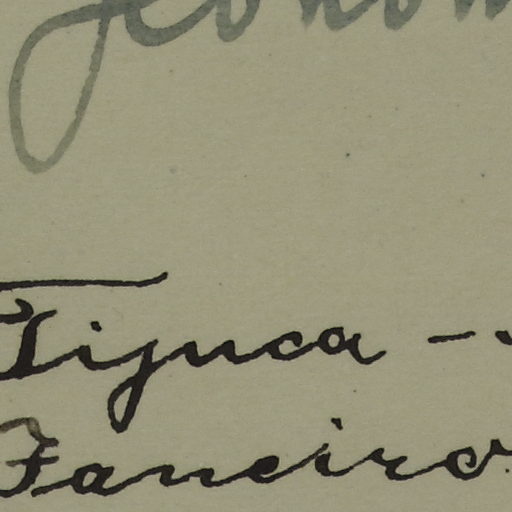 Tijuca -
Janeiro